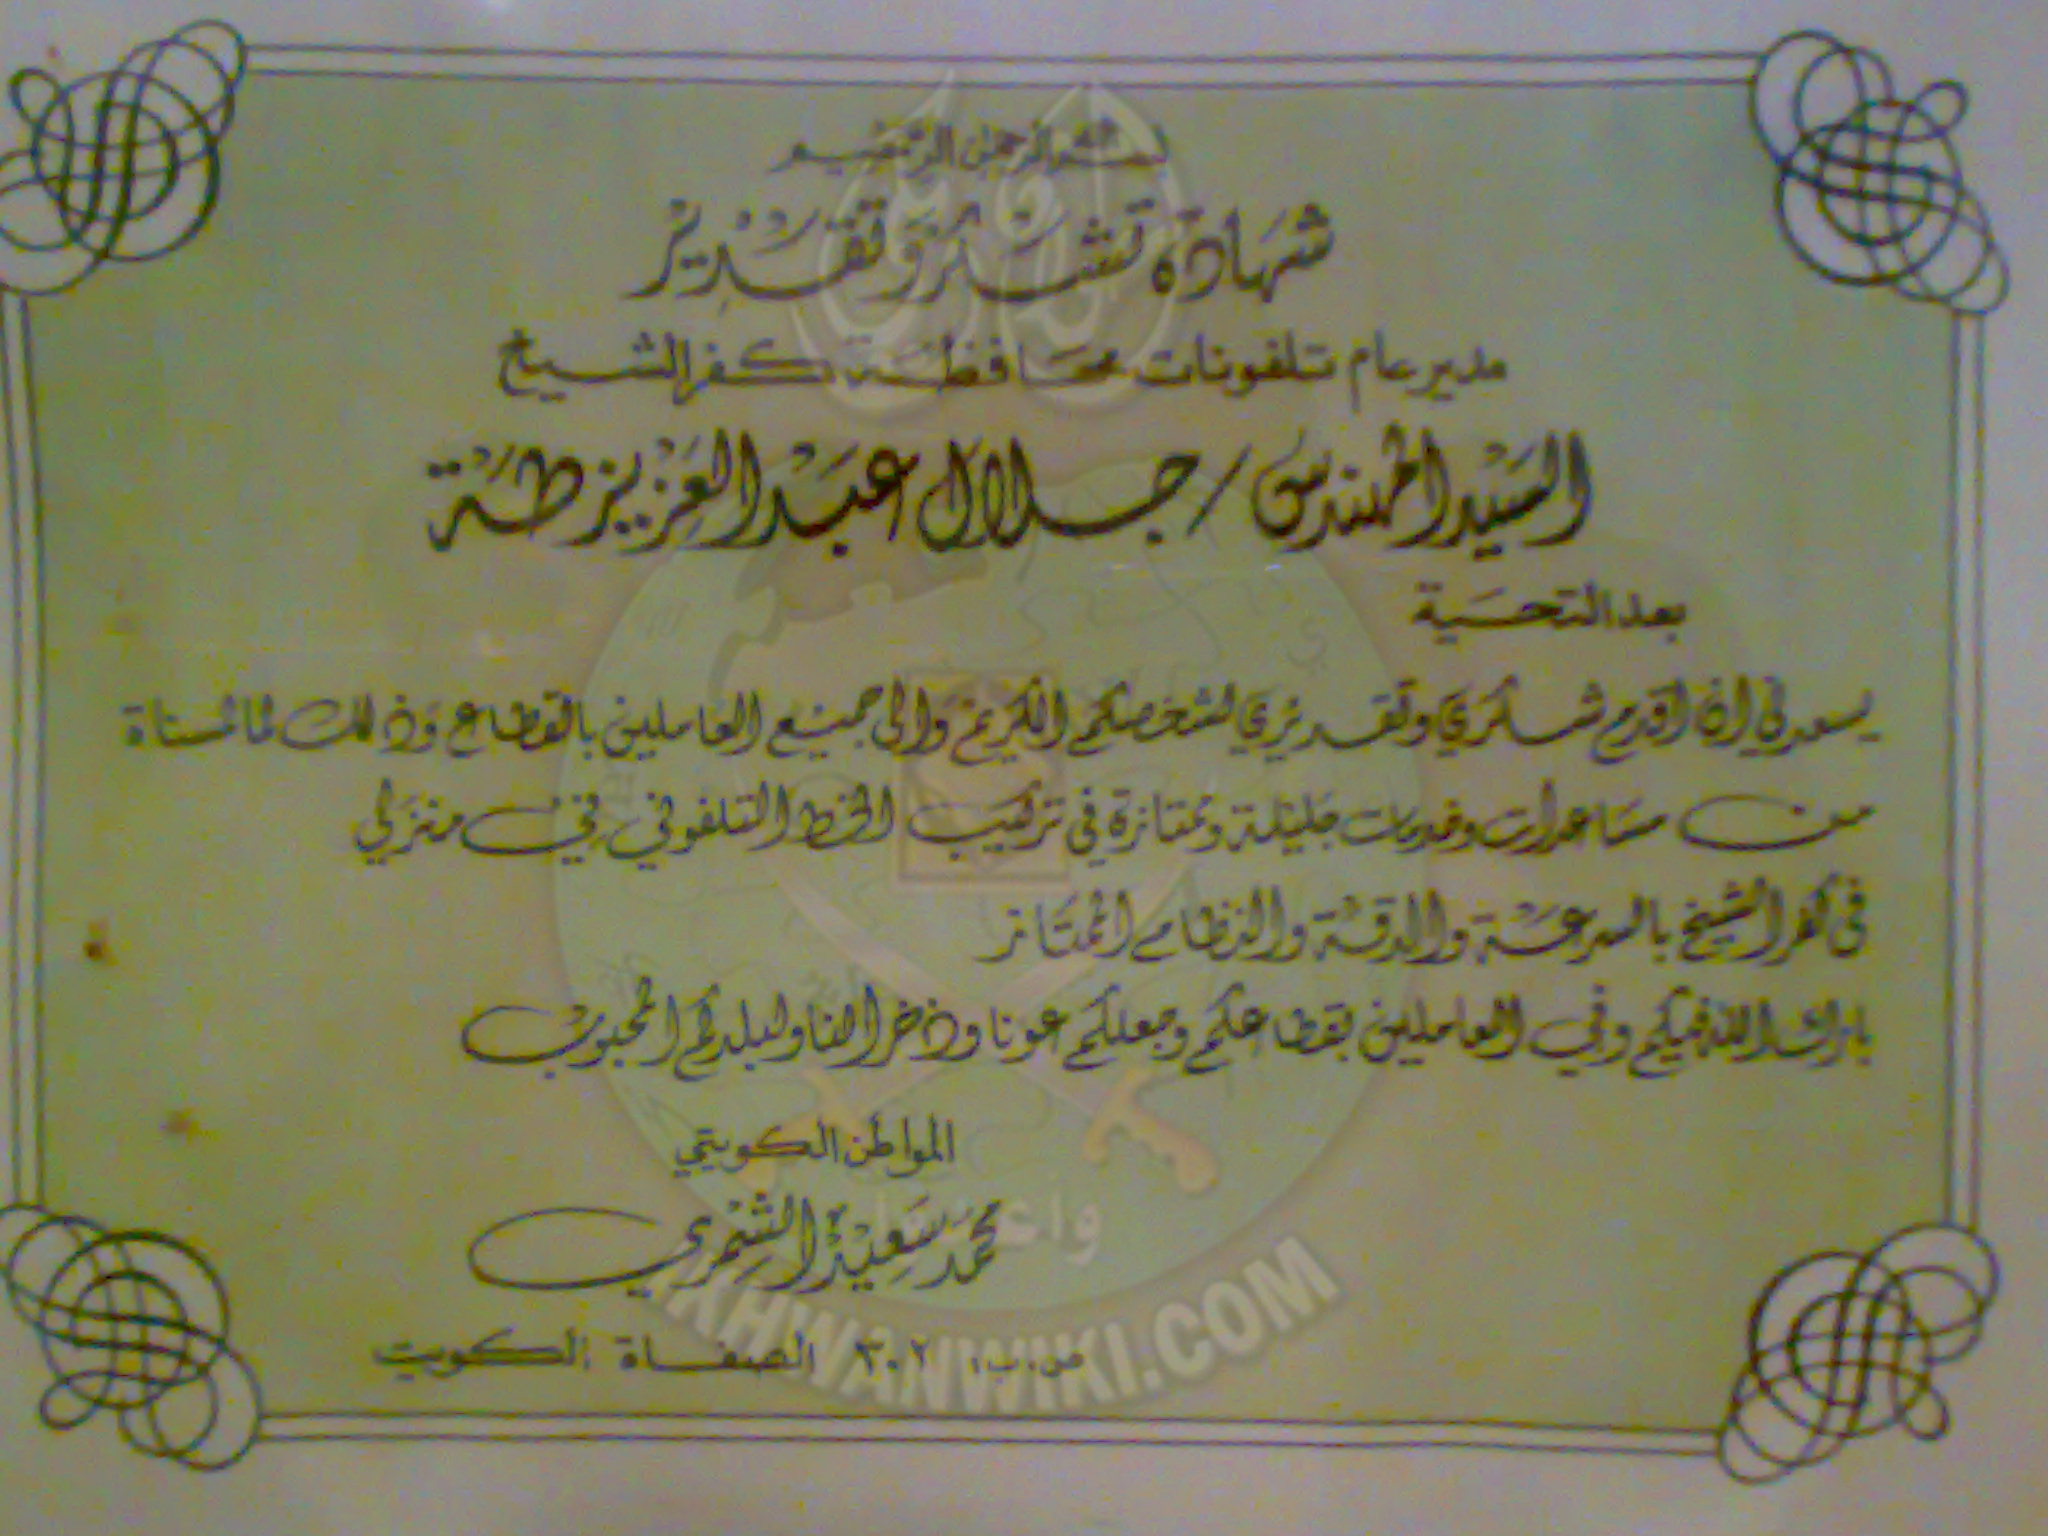 بسم الله الرحمن الرحيم
شهادة تشكر وتقدير
مدير عام تلفونات محافظة كفر الشيخ
السيد المهندس / جلال عبد العزيز طة
بعد التحية
يسعدني ان اقدم شكري وتقديري لشخصكم الكريم والى جميع العاملين بالقطاع وذلك لما لمسناة
من مساعدات وخدمات جليلة وممتازة في تركيب الخط التلفوني في منزلي
في كفر الشيخ بالسرعة والدقة والنظام الممتاز
بارك الله فيكم وفي العاملين بقطاعكم وجعلكم عونا وذخرا لنا ولبلدكم المحبوب
المواطن الكويتي
محمد سعيد الشمري
ص.ب: ٣٠٢ الصفاة الكويت
واعدوا
IKHWANWIKI.COM